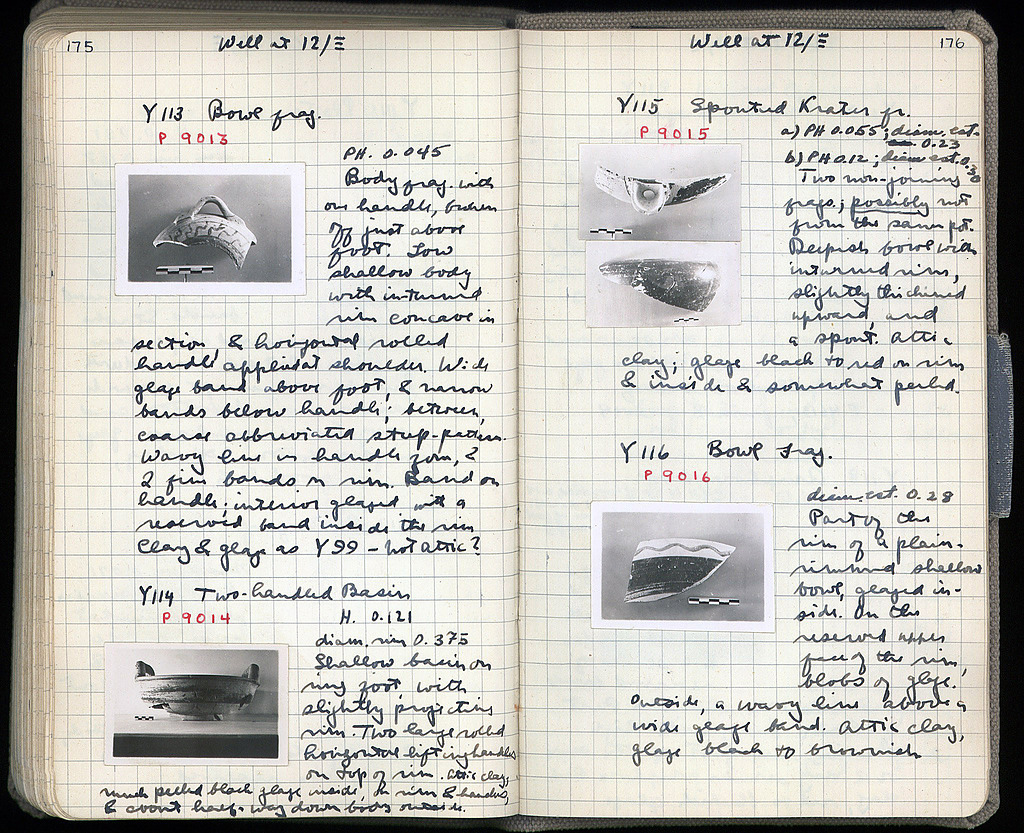 175
Well at 12/Ξ
Y113 Bowl frag.
P 9013
PH. 0.045
Body frag. with
one handle, broken
off just above
foot. Low
shallow body
with in-turned
rim concave in
section, & horizontal rolled
handle applied at shoulder. Wide
glaze band above foot, & narrow
bands below handle; between,
coarse abbreviated strap-pattern.
Wavy line in handle zone, &
2 firm bands on rim. Band on
handle; interior glazed with a
reserved band inside the rim
Clay & glaze as Y99 – not Attic?
Y114 Two-handled Basin
P 9014
H. 0.121
diam. rim 0.375
Shallow basin on
ring foot with
slightly projecting
rim. Two large rolled
horizontal lifting handles
on top of rim. Attic clay;
much peeled black glaze inside, on rim & handles,
& about half-way down body outside.
176
Well at 12/Ξ
Y115 Spouted Krater fr.
P 9015
a) PH 0.055; diam. est.
0.23
b) PH 0.12; diam est. 0.30
Two non-joining
frags; possibly not
from the same pot.
Deepish bowl with
inturned rim,
slightly thickened
upward, and
a spout. Attic
clay; glaze black to red on rim
& inside & somewhat peeled.
Y116 Bowl frag.
P 9016
diam. est. 0.28
Part of the
rim of a plain-
rimmed shallow
bowl, glazed in-
side. On the
reserved upper
face of the rim,
blobs of glaze.
Outside, a wavy line above a
wide glaze band. Attic clay,
glaze black to brownish